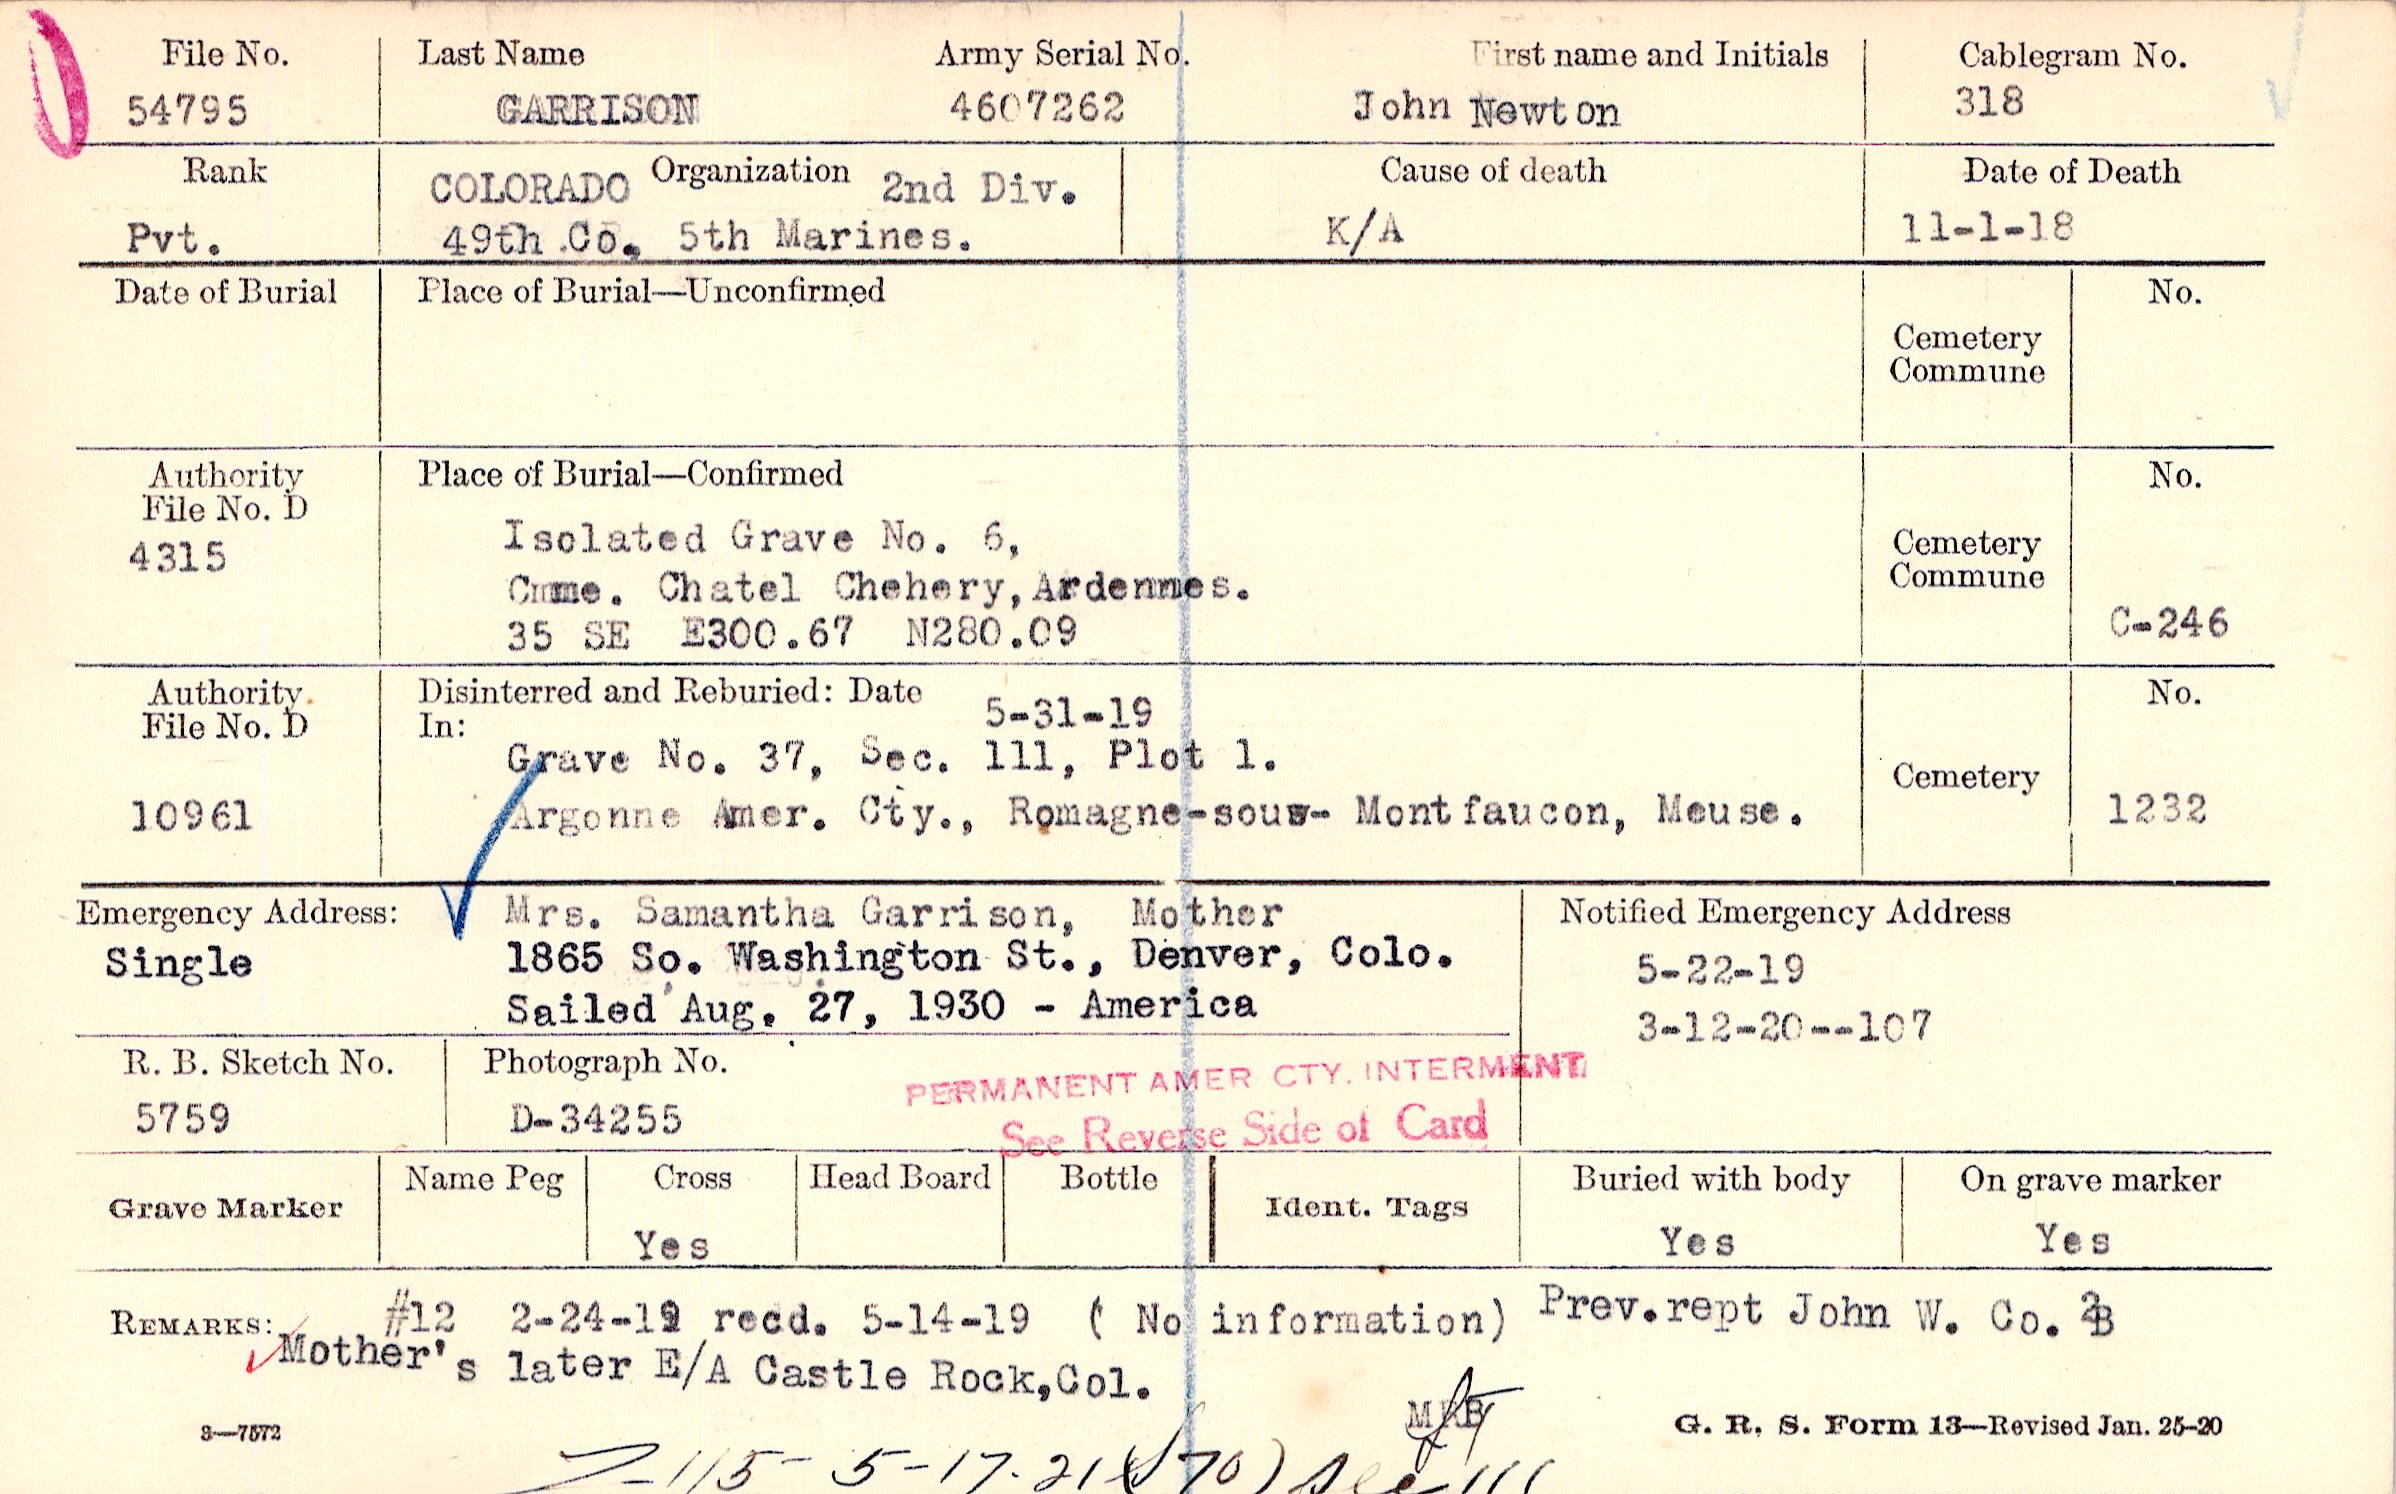 File No. Last Name Army Serial No. First name and Initials Cablegram No.
54795 GARRISON 4607262 John Newton 318
Rank COLORADO Organization 2nd Div. Cause of death Date of Death
Pvt. 49th Co. 5th Marines. K/A 11-1-18
Date of Burial Place of Burial—Unconfirmed No.
Cemetery
Commune
Authority Place of Burial—Confirmed No.
File No. D
4315 Isolated Grave No. 6,
Cmme. Chatel Chehery, Ardennes.
Cemetery
Commune
35 SE E300.67 N280.09 C-246
Authority Disinterred and Reburied: Date 5-31-19 No.
File No. D In:
Grave No. 37, Sec. 111, Plot 1.
Cemetery
10961 Argonne Amer. Cty., Romagne-sous- Montfaucon, Meuse. 1232
Emergency Address: Mrs. Samantha Garrison, Mother Notified Emergency Address
Single 1865 So. Washington St., Denver, Colo. 5-22-19
Sailed Aug. 27, 1930 - America 3-12-20--107
R. B. Sketch No. Photograph No. PERMANENT AMER CTY. INTERMENT
5759 D-34255 See Reverse Side of Card
Grave Marker Name Peg Cross Head Board Bottle Ident. Tags Buried with body On grave marker
Yes Yes Yes
REMARKS: #12 2-24-19 recd. 5-14-19 ( No information) Prev.rept John W. Co.
Mother's later E/A Castle Rock,Col.
3—7572 G. R. S. Form 13—Revised Jan. 25-20
5-17-21